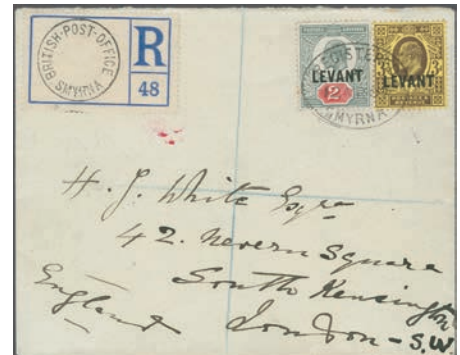 BRITISH·POST·OFFICE
SMYRNA
R
48
LEVANT
2
LEVANT
3
REGISTERED
SMYRNA
H. J. White Esqre
42. Nevern Square
South Kensington
London - S.W
England